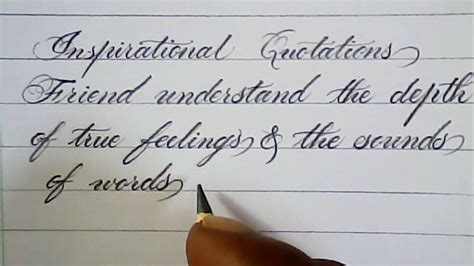 Inspirational Quotations
Friend understand the depth
of true feelings & the sounds
of words